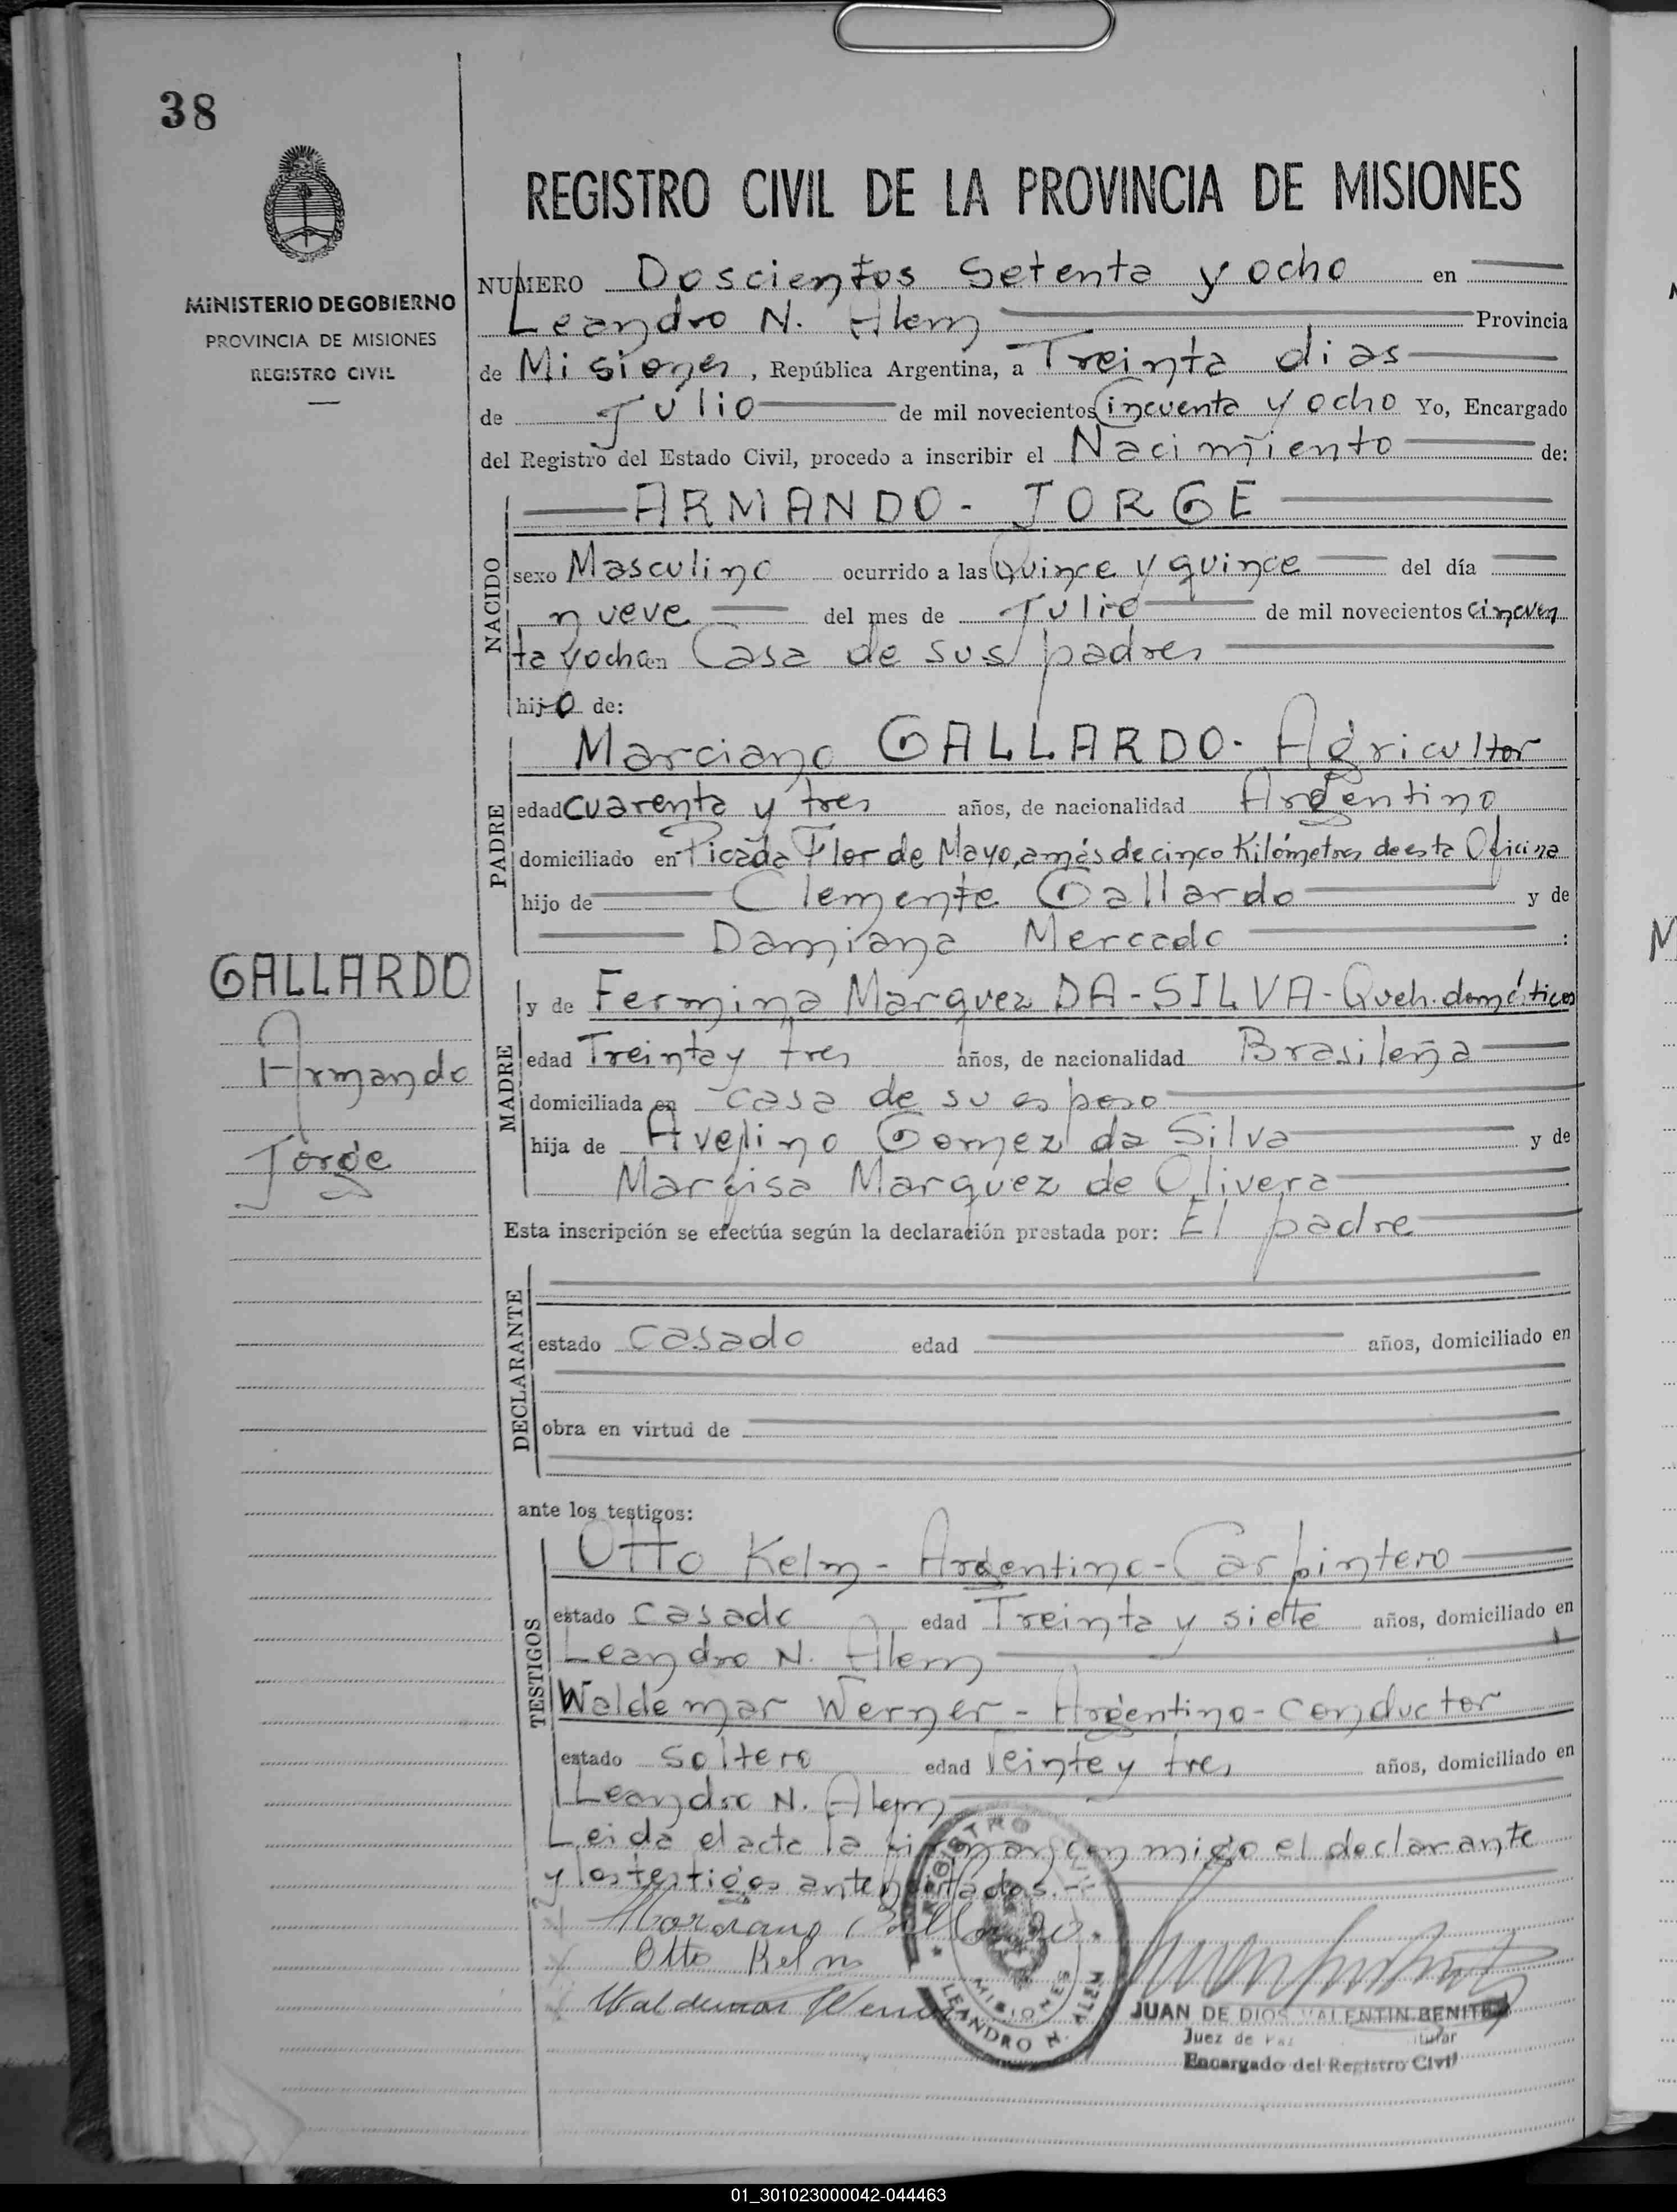 38
REGISTRO CIVIL DE LA PROVINCIA DE MISIONES
MINISTERIO DE GOBIERNO
PROVINCIA DE MISIONES
REGISTRO CIVIL
NUMERO Doscientos Setenta y ocho en
Leandro N. Alem Provincia
de Misiones, República Argentina, a Treinta dias
de Julio de mil novecientos Cincuenta y ocho Yo, Encargado
del Registro del Estado Civil, procedo a inscribir el Nacimiento de:
NACIDO
ARMANDO - JORGE
sexo Masculino ocurrido a las Quince y quince del día
nueve del mes de Julio de mil novecientos cincuen
ta y ocho en Casa de sus padres
hijo de:
PADRE
Marciano GALLARDO - Agricultor
edad cuarenta y tres años, de nacionalidad Argentino
domiciliado en Picada Flor de Mayo, a más de cinco Kilómetros de esta Oficina
hijo de Clemente Gallardo y de
Damiana Mercado :
GALLARDO
Armando
Jorge
MADRE
y de Fermina Marquez DA-SILVA - Queh. domésticos
edad Treinta y tres años, de nacionalidad Brasileña
domiciliada en casa de su esposo
hija de Avelino Gomez da Silva y de
Marfisa Marquez de Olivera
Esta inscripción se efectúa según la declaración prestada por: El padre
DECLARANTE
estado casado edad años, domiciliado en
obra en virtud de
ante los testigos:
TESTIGOS
Otto Kelm - Argentino - Carpintero
estado casado edad Treinta y siete años, domiciliado en
Leandro N. Alem
Waldemar Werner - Argentino - conductor
estado soltero edad Veinte y tres años, domiciliado en
Leandro N. Alem
Leida el acta la firman conmigo el declarante
y los testigos antes citados.-
Marciano Gallardo
Otto Kelm
Waldemar Werner
REGISTRO CIVIL
MISIONES
LEANDRO N. ALEM
JUAN DE DIOS VALENTIN BENITEZ
Juez de Paz Titular
Encargado del Registro Civil
01_301023000042-044463